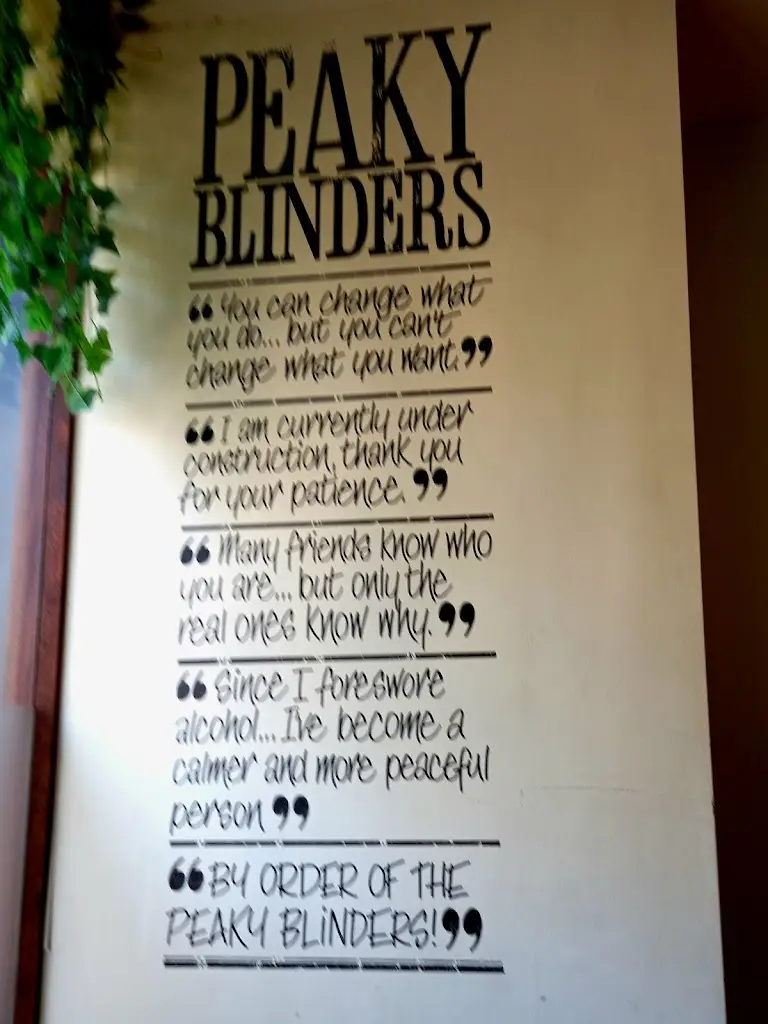 PEAKY
BLINDERS
“You can change what
you do... but you can't
change what you want.”
“I am currently under
construction, thank you
for your patience.”
“Many friends know who
you are... but only the
real ones know why.”
“Since I foreswore
alcohol... I've become a
calmer and more peaceful
person”
“BY ORDER OF THE
PEAKY BLINDERS!”